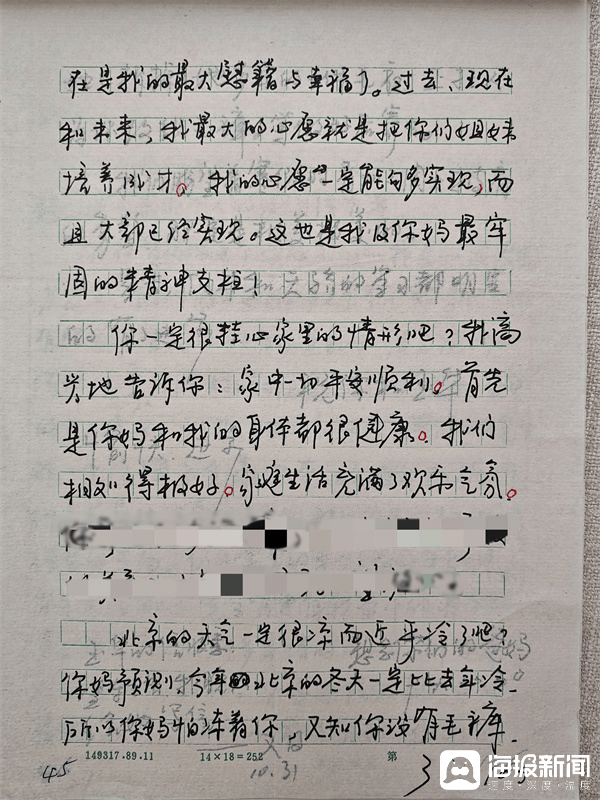 在是我的最大慰籍与幸福了。过去、现在
和未来，我最大的心愿就是把你们姐妹
培养成才。我的心愿一定能够实现，而
且大部已经实现。这也是我及你妈最牢
固的精神支柱！
你一定很挂心家里的情形吧？我高
兴地告诉你：家中一切平安顺利。首先
是你妈和我的身体都很健康。我们
相处得极好。家庭生活充满了欢乐气氛。
北京的天气一定很凉而近乎冷了吧？
你妈预测，今年北京的冬天一定比去年冷。
所以你妈怕冻着你，又知你没有毛裤，
149317.89.11 14×18=252 第
45 10.31
海报新闻
速度·深度·温度